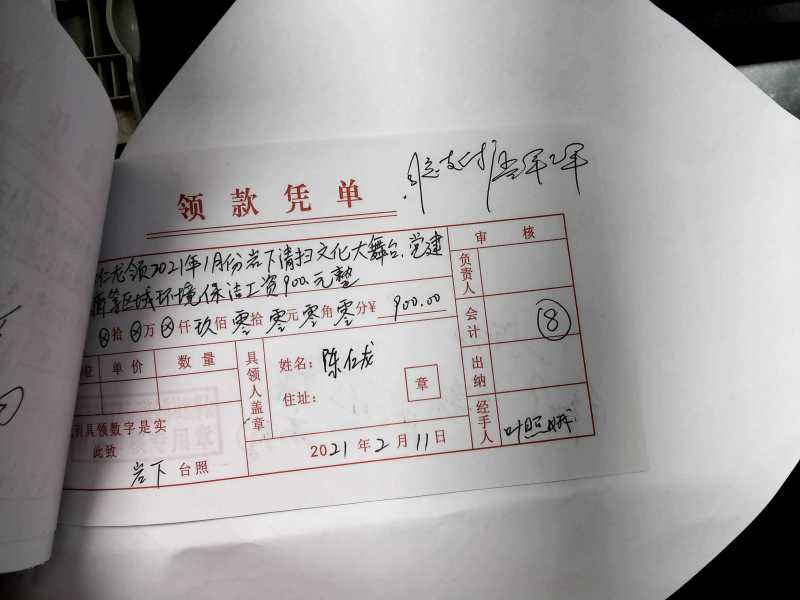 领款凭单
仁龙领2021年1月份岩下清扫文化大舞台、党建
区域环境保洁工资900.元整
ⓧ拾ⓧ万ⓧ仟玖佰零拾零元零角零分¥ 900.00
单价 数量
具领人盖章
姓名：陈仁龙
住址：
章
列具领数字是实
此致
岩下 台照
2021年2月11日
审核
负责人
会计 ⑧
出纳
经手人 叶照娥